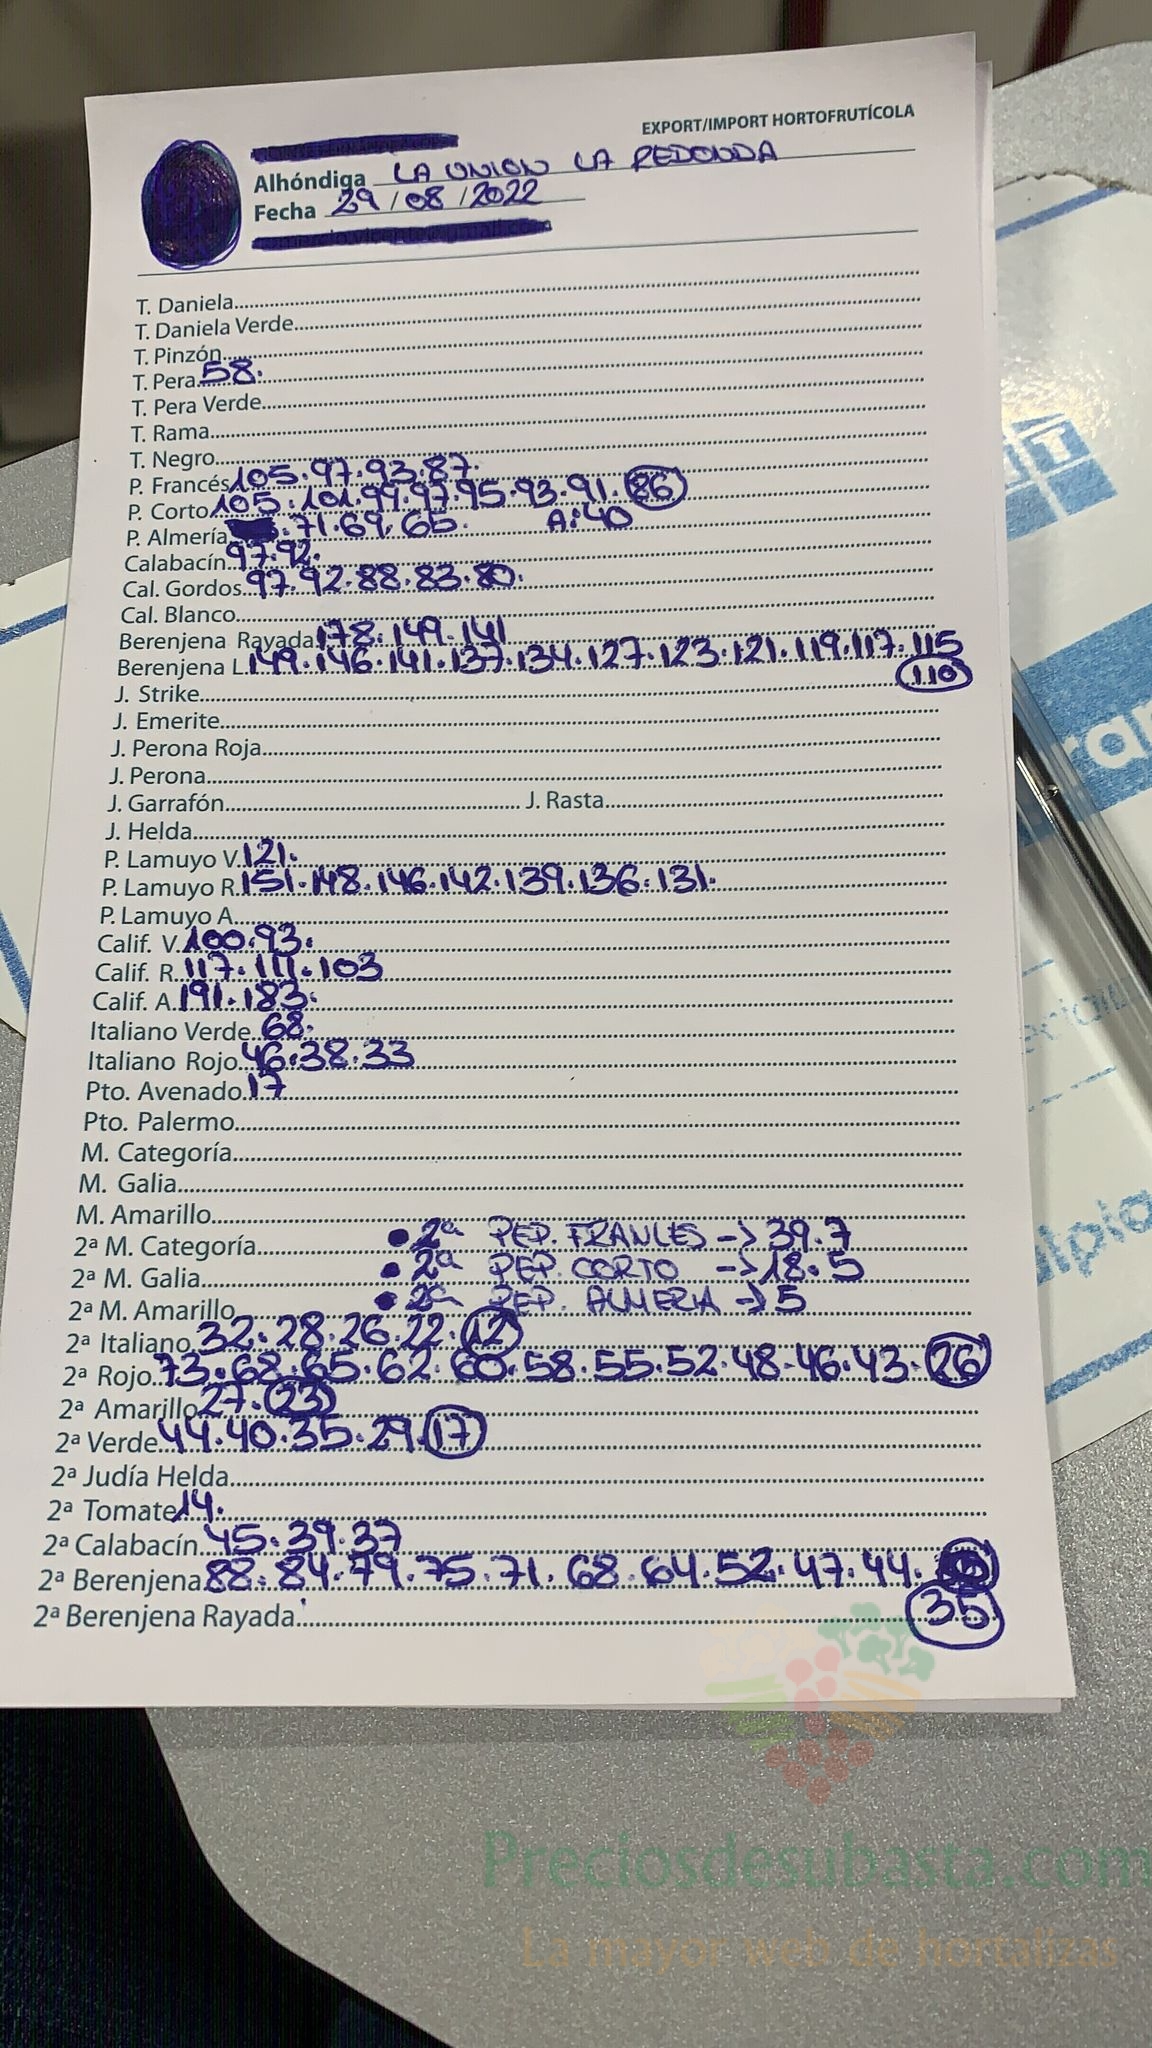 EXPORT/IMPORT HORTOFRUTÍCOLA
Alhóndiga LA UNION LA REDONDA
Fecha 29/08/2022
T. Daniela
T. Daniela Verde
T. Pinzón
T. Pera 58.
T. Pera Verde
T. Rama
T. Negro
P. Francés 105.97.93.87.
P. Corto 105.101.99.97.95.93.91.86
P. Almería 71.69.65. A:40
Calabacín 97.92.
Cal. Gordos 97.92.88.83.80.
Cal. Blanco
Berenjena Rayada 178.149.141
Berenjena L. 149.146.141.137.134.127.123.121.119.117.115
110
J. Strike
J. Emerite
J. Perona Roja
J. Perona
J. Garrafón J. Rasta
J. Helda
P. Lamuyo V. 121.
P. Lamuyo R. 151.148.146.142.139.136.131.
P. Lamuyo A
Calif. V. 100.93.
Calif. R. 117.111.103
Calif. A. 191.183.
Italiano Verde 68.
Italiano Rojo 46.38.33
Pto. Avenado 17
Pto. Palermo
M. Categoría
M. Galia
M. Amarillo
2ª M. Categoría • 2ª PEP. FRANCES -> 39.7
2ª M. Galia • 2ª PEP. CORTO -> 18.5
2ª M. Amarillo • 2ª PEP. ALMERIA -> 5
2ª Italiano 32.28.26.22.12
2ª Rojo 73.68.65.62.60.58.55.52.48.46.43.26
2ª Amarillo 27.23
2ª Verde 44.40.35.29.17
2ª Judía Helda
2ª Tomate 14.
2ª Calabacín 45.39.37
2ª Berenjena 88.84.79.75.71.68.64.52.47.44.
2ª Berenjena Rayada 35
Preciosdesubasta.com
La mayor web de hortalizas